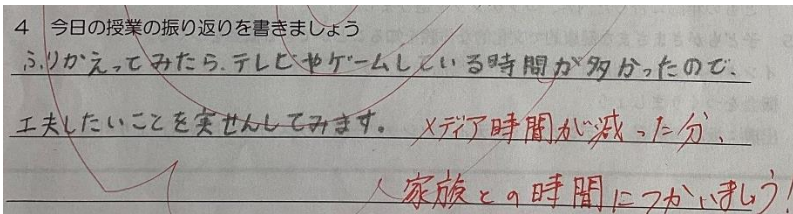 4 今日の授業の振り返りを書きましょう
ふりかえってみたら、テレビやゲームしている時間が多かったので、
工夫したいことを実せんしてみます。 メディア時間が減った分、
家族との時間につかいましょう!